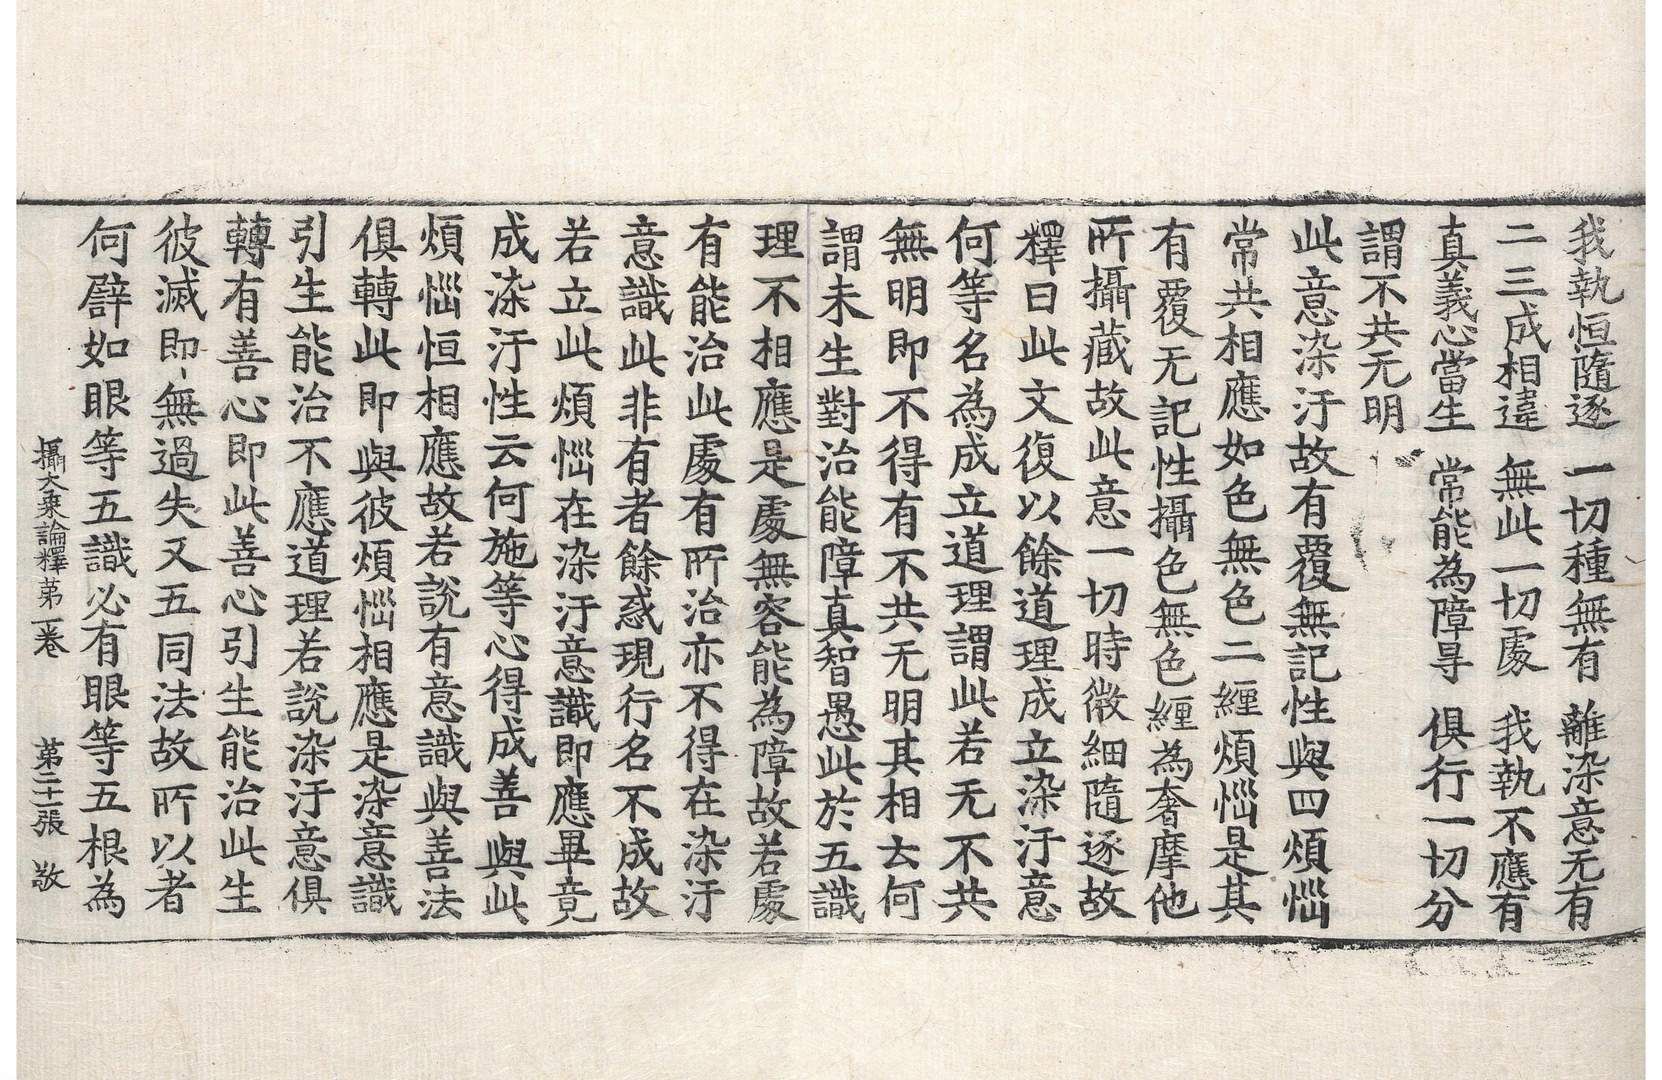 我執恒隨逐　一切種無有　離染意无有
二三成相違　無此一切處　我執不應有
真義心當生　常能為障㝵　俱行一切分
謂不共无明
此意染汙故有覆無記性與四煩惱
常共相應如色無色二纏煩惱是其
有覆无記性攝色無色纏為奢摩他
所攝藏故此意一切時微細隨逐故
釋曰此文復以餘道理成立染汙意
何等名為成立道理謂此若无不共
無明即不得有不共无明其相云何
謂未生對治能障真智愚此於五識
理不相應是處無容能為障故若處
有能治此處有所治亦不得在染汙
意識此非有者餘惑現行名不成故
若立此煩惱在染汙意識即應畢竟
成染汙性云何施等心得成善與此
煩惱恒相應故若說有意識與善法
俱轉此即與彼煩惱相應是染意識
引生能治不應道理若說染汙意俱
轉有善心即此善心引生能治此生
彼滅即無過失又五同法故所以者
何譬如眼等五識必有眼等五根為
攝大乗論釋第一卷　第二十一張　敬